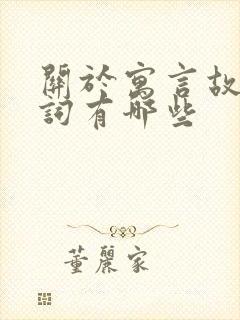 關於寓言故
詞有哪些
董麗家